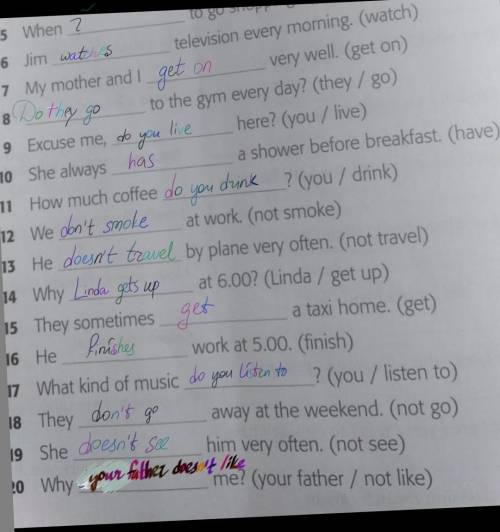 5 When ? to go
6 Jim watches television every morning. (watch)
7 My mother and I get on very well. (get on)
8 Do they go to the gym every day? (they / go)
9 Excuse me, do you live here? (you / live)
10 She always has a shower before breakfast. (have)
11 How much coffee do you drink ? (you / drink)
12 We don't smoke at work. (not smoke)
13 He doesn't travel by plane very often. (not travel)
14 Why Linda gets up at 6.00? (Linda / get up)
15 They sometimes get a taxi home. (get)
16 He finishes work at 5.00. (finish)
17 What kind of music do you listen to ? (you / listen to)
18 They don't go away at the weekend. (not go)
19 She doesn't see him very often. (not see)
20 Why your father doesn't like me? (your father / not like)